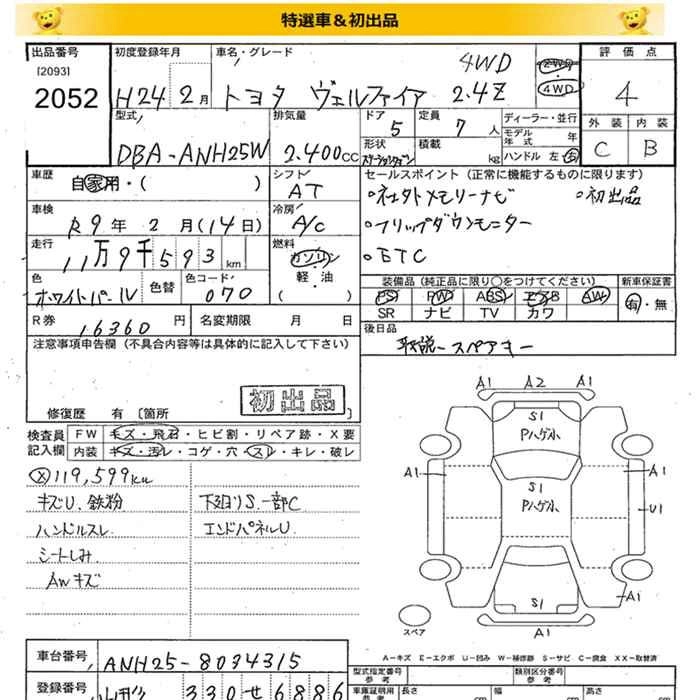 特選車＆初出品
出品番号 初度登録年月 車名・グレード 評価点
[2093]
2052
H24 2月 トヨタ ヴェルファイア 4WD 2.4Z
2WD
4WD
4
型式 排気量 ドア 5 定員 7人 ディーラー・並行
モデル年式 年
外装 内装
DBA-ANH25W 2.400cc 形状 ステーションワゴン 積載 kg ハンドル 左 右
C B
車歴 自家用・( ) シフト AT
セールスポイント (正常に機能するものに限ります)
・初出品
車検 R9年2月(14日) 冷房 A/C
・フリップダウンモニター
走行 11万9千593km 燃料 ガソリン・軽・油( )
・ETC
色 ホワイトパール 色替 色コード 070
装備品(純正品に限り○をつけてください) 新車保証書
PS PW ABS エアB AW 有・無
SR ナビ TV カワ
R券 16360円 名変期限 月 日
後日品
取説-スペアキー
注意事項申告欄 (不具合内容等は具体的に記入して下さい)
初出品
修復歴 有 [箇所
検査員記入欄 FW キズ・飛石・ヒビ割・リペア跡・X要
内装 キズ・汚レ・コゲ・穴・スレ・キレ・破レ
119,599km
キズU、鉄粉 下廻りS.一部C
ハンドルスレ. エンドパネルU.
シートしみ.
AWキズ
A1 A2 A1
S1
Pハゲ小
A1 A1
S1
Pハゲ小
U1
S1
A1
A1
スペア
A-キズ E-エクボ U-凹み W-補修跡 S-サビ C-腐食 XX-取替済
車台番号 ANH25-8034315
型式指定番号 類別区分番号
参考 参考
登録番号 330 せ 6886
車庫証明用参考 長さ cm 幅 cm 高さ